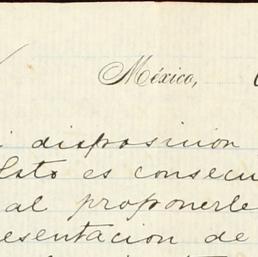 México,
i disposición
lato es consecu
al proponerle
esentacion de